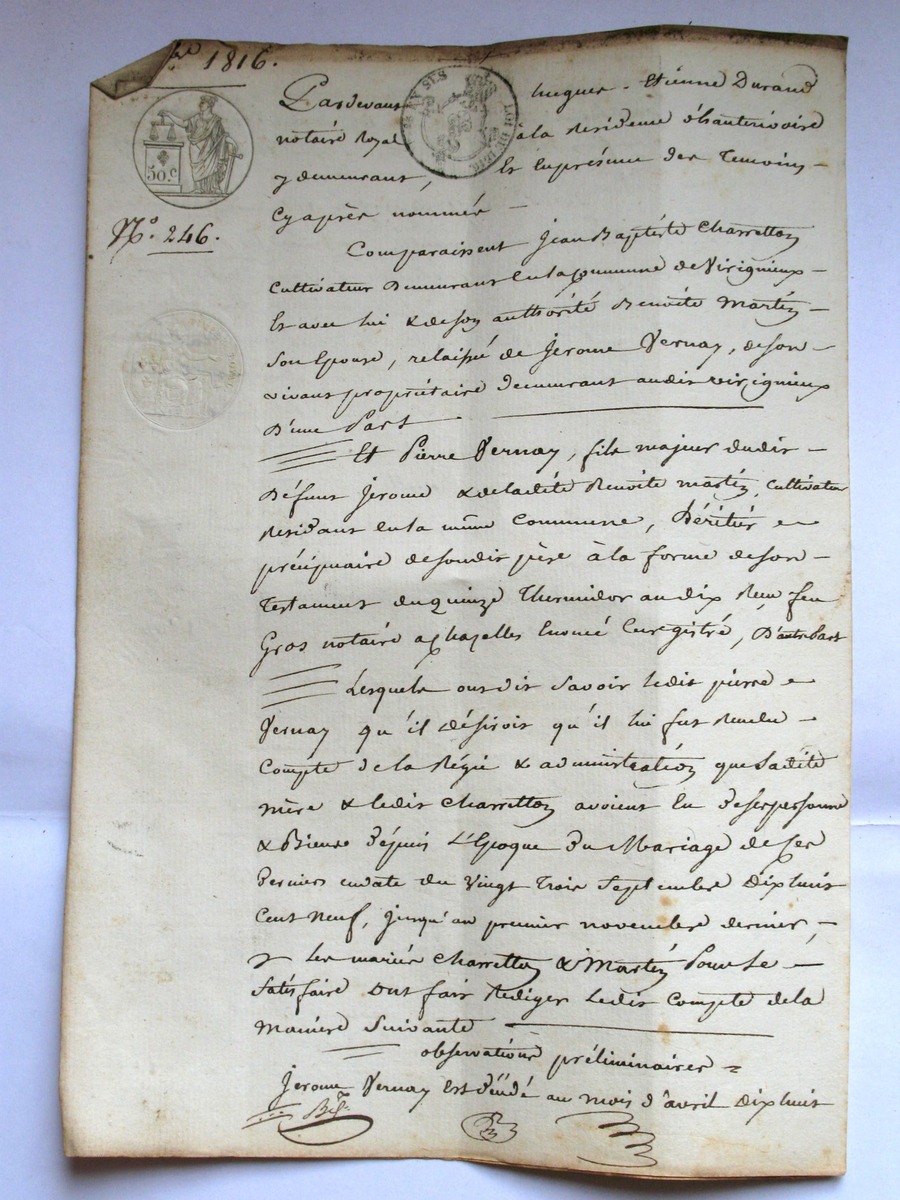 1816.
50.c
LOI DE 1816
N.o 246.
Pardevant hugues - Etienne Durand
notaire Royal à la Residence d'hauterivoire
y demeurant, Et En présence des Temoins -
Cy après nommés -
Comparaissent Jean Baptiste Charretton
Cultivateur Demeurant En la Commune de Virignieux -
Et avec lui & de son authorité Benoite Martin
son Epouse, relaissé de Jerome Vernay, de son -
vivant propriétaire demeurant audit virignieux
D'une Part
Et Pierre Vernay, fils majeur dudit -
Défunt Jerome & de ladite Benoite martin, Cultivateur
Residant En la même Commune, héritier
précipuaire de son dit père à la forme de son -
Testament du quinze Thermidor an dix Reçu feu
Gros notaire a Chazelles Enoncé Enregistré, D'autre Part
Lesquels ont dit savoir ledit pierre
Vernay qu'il désiroit qu'il lui fut Rendu -
Compte de la Régie & administration que Sadite
mère & ledit Charretton avoient Eu de ses personne
& Biens Depuis L'Epoque Du Mariage de ces
derniers en date du Vingt Trois Septembre Dix huit
Cent Neuf, jusqu'au premier novembre dernier,
& les mariés Charretton & Martin Pour Le -
Satisfaire Ont fait Rediger Ledit Compte de la
Maniere Suivante
observations préliminaires =
Jerome Vernay Est décédé au mois d'avril Dix huit